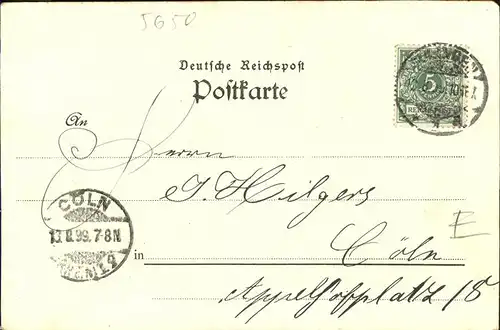 5650
Deutsche Reichspost
Postkarte
5
An
Herrn
J. Hilgers
CÖLN
13.8.99.7-8N
in Cöln
Appellhofplatz 18
E